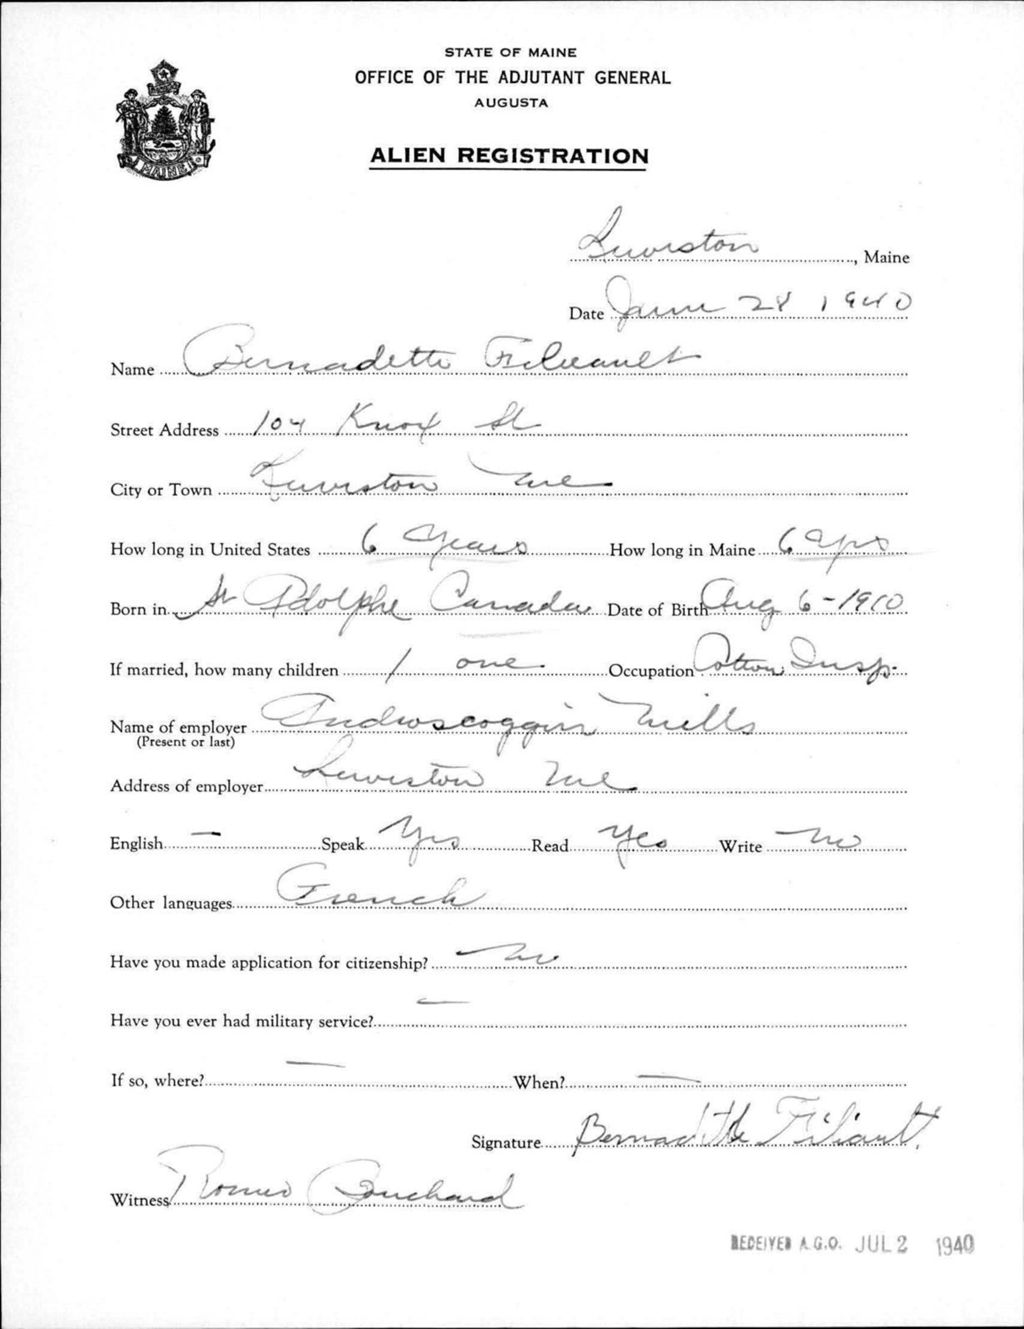 STATE OF MAINE
OFFICE OF THE ADJUTANT GENERAL
AUGUSTA
ALIEN REGISTRATION
MAINE
Lewiston, Maine
Date June 28 1940
Name Bernadette Filieault
Street Address 104 Knox St
City or Town Lewiston Me
How long in United States 6 Years How long in Maine 6 yrs
Born in St Adolphe Canada Date of Birth Aug 6-1910
If married, how many children 1 one Occupation Cotton Insp.
Name of employer Androscoggin Mills
(Present or last)
Address of employer Lewiston Me
English — Speak Yes Read Yes Write No
Other languages French
Have you made application for citizenship? No
Have you ever had military service? —
If so, where? — When? —
Signature Bernadette Filiault.
Witness Romeo Bouchard
RECEIVED A.G.O. JUL 2 1940